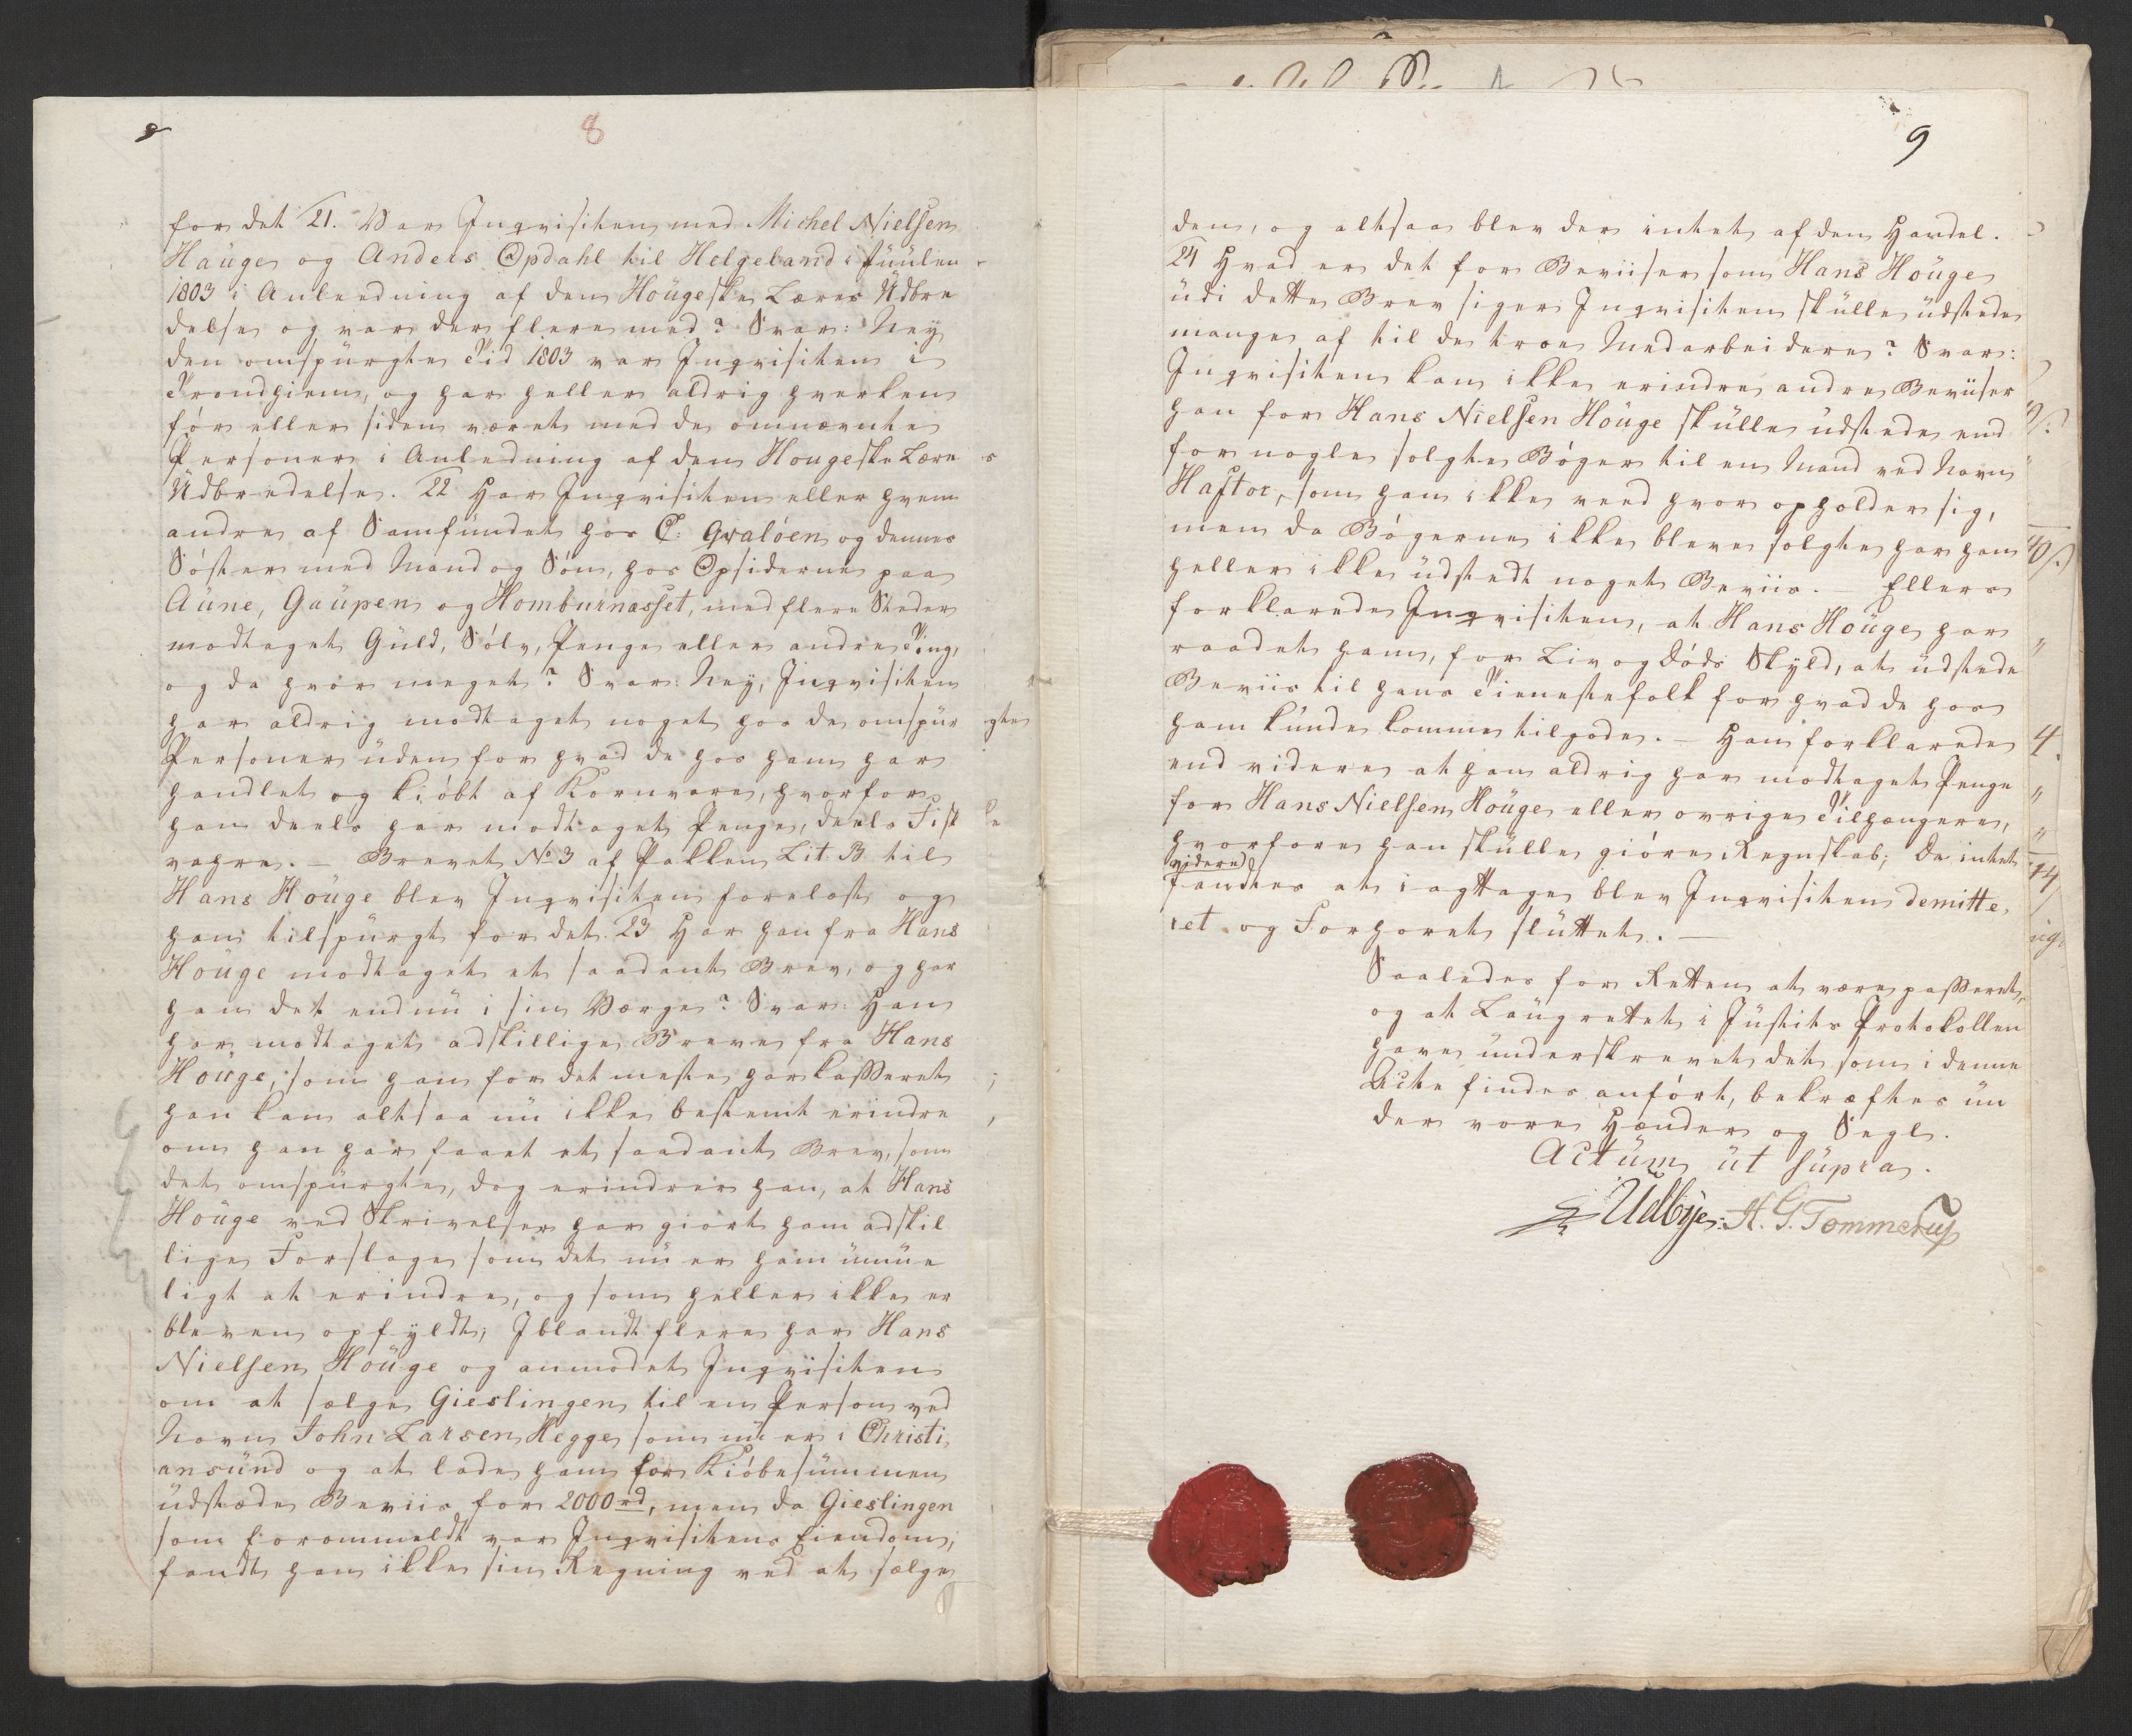 8
8
for det 21. Var Inqvisiten med Michel Nielsen
Haüge og Anders Opdahl til Helgeland i Juulen
1803 i Anleedning af den Hoügeske Læres Udbre
delse og var der flere med? Svar: Ney
den omspürgte Tid 1803 var Inqvisiten i
Trondhiem, og har heller aldrig hverken
før eller siden været med de omnævnte
Personer i Anledning af den Hougeske Læres
Udbredelse. 22 Har Inqvisiten eller hvem
andre af Samfundet hos E: Gvaløen og dennes
Søster med Mand og Søn, hos Opsiderne paa
Aüne, Gaüpen og Homburnasset, med flere Steder
modtaget Güld, Sølv, Penge eller andre Ting,
og da hvor meget? Svar: Ney, Inqvisiten
har aldrig modtaget noget hos de omspürgte
Personer üden for hvad de hos ham har
handlet og kiøbt af Kornvare, hvorfor
han deels har modtaget Penge, deels Fiske
vahre. – Brevet No 3 af Pakken Lit. B til
Hans Hoüge blev Inqvisiten forelæst og
han tilspürgt for det. 23 Har han fra Hans
Houge modtaget et saadant Brev, og har
han det endnü i sin Værge? Svar: Han
har modtaget adskillige Breve fra Hans
Hoüge, som han for det meste har kasseret;
han kan altsaa nü ikke bestemt erindre,
om han har faaet et saadant Brev, som
det omspürgte, dog erindrer han, at Hans
Hoüge ved Skrivelser har giort ham adskil
lige Forslage som det nü er ham ümüe
ligt at erindre, og som heller ikke er
bleven opfyldt; Iblandt flere har Hans
Nielsen Hoüge og anmodet Inqvisiten
om at sælge Gieslingen til en Person ved
Navn John Larsen Hegge som nü er i Christi,
ansünd og at lade ham for Kiøbesümmen
üdstæde Beviis for 2000 rd, men da Gieslingen
som forommeldt var Inqvisitens Eiendom,
fandt han ikke sin Regning ved at sælge
9
den, og altsaa blev der intet af den Handel.
24 Hvad er det for Beviiser som Hans Hoüge
üdi dette Brev siger Inqvisiten skülle üdstede
mange af til de troe Medarbeidere? Svar:
Inqvisiten kan ikke erindre andre Beviiser
han for Hans Nielsen Hoüge skülle üdstede end
for nogle solgte Bøger til en Mand ved Navn
Haftor, som han ikke veed hvor opholder sig,
men da Bøgerne ikke bleve solgte har han
heller ikke üdstedt noget Beviis. – Ellers
forklarede Inqvisiten, at Hans Hoüge har
raadet ham, for Liv og Døds Skyld, at üdstede
Beviis til hans Tienestefolk for hvad de hos
ham künde komme tilgode. – Han forklarede
end videre at han aldrig har modtaget Penge
for Hans Nielsen Hoüge eller øvrige Tilhængere,
hvorfore han skülle giøre Regnskab; Da intet
videre
fandtes at iagttage blev Inqvisiten demitte,
ret og Forhøret slüttet. –
Saaledes for Retten at være passeret,
og at Laügrettet i Jüstits Protokollen
have ünderskrevet det som i denne
Acte findes anført, bekræftes ün
der vore Hænder og Segl.
Actüm üt süpra.
Udbÿe. H. G. Tommerup